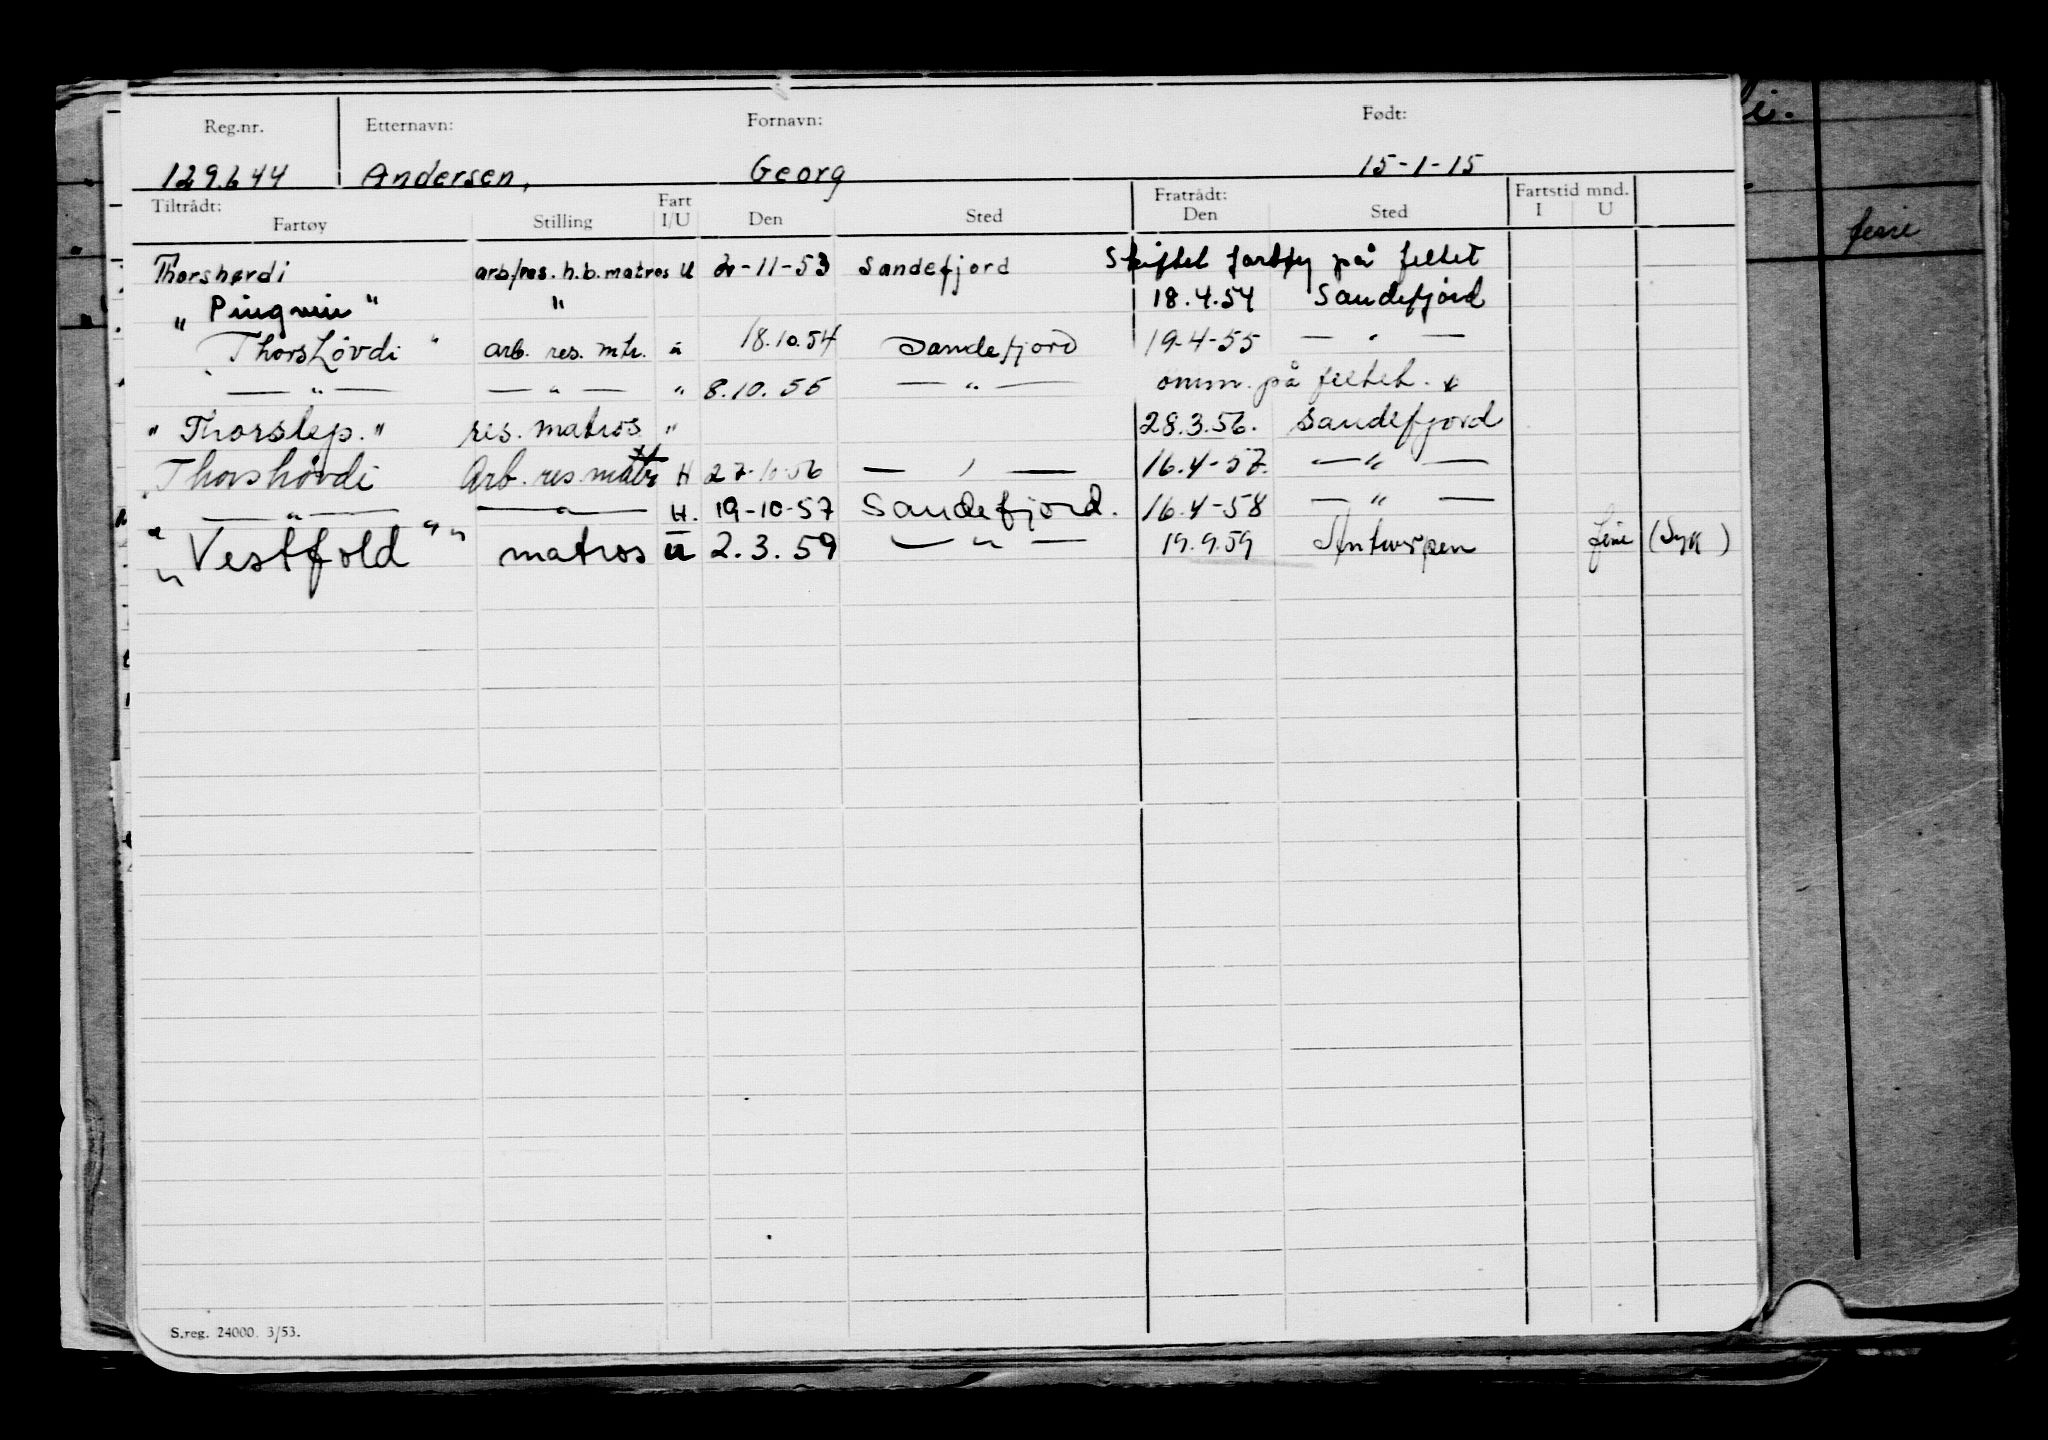 Reg.nr. Etternavn: Fornavn: Født:
129.644 Andersen, Georg 15-1-15
Tiltrådt: Fratrådt: Fartstid mnd.
Fartøy Stilling Fart I/U Den Sted Den Sted I U
Thorshørdi arb/res. h.b. matros U 2-11-53 Sandefjord Skiftet fartøy på feltet
"Pingvin" " 18.4.54 Sandefjord
"ThorsHøvdi" arb. res. mtr. u 18.10.54 Sandefjord 19-4-55 — " —
— " — — " — " 8.10.55 — " — omm. på feltet.
"Thorslep." res. matros " 28.3.56. Sandefjord
Thorshövdi Arb. res. matr H 27-10-56 — " — 16.4-57. — " —
— " — — " — H. 19-10-57 Sandefjord. 16.4-58 — " —
"Vestfold" matros u 2.3.59 — " — 19.9.59 Antwerpen ferie (Syk)
S.reg. 24000. 3/53.
ferie